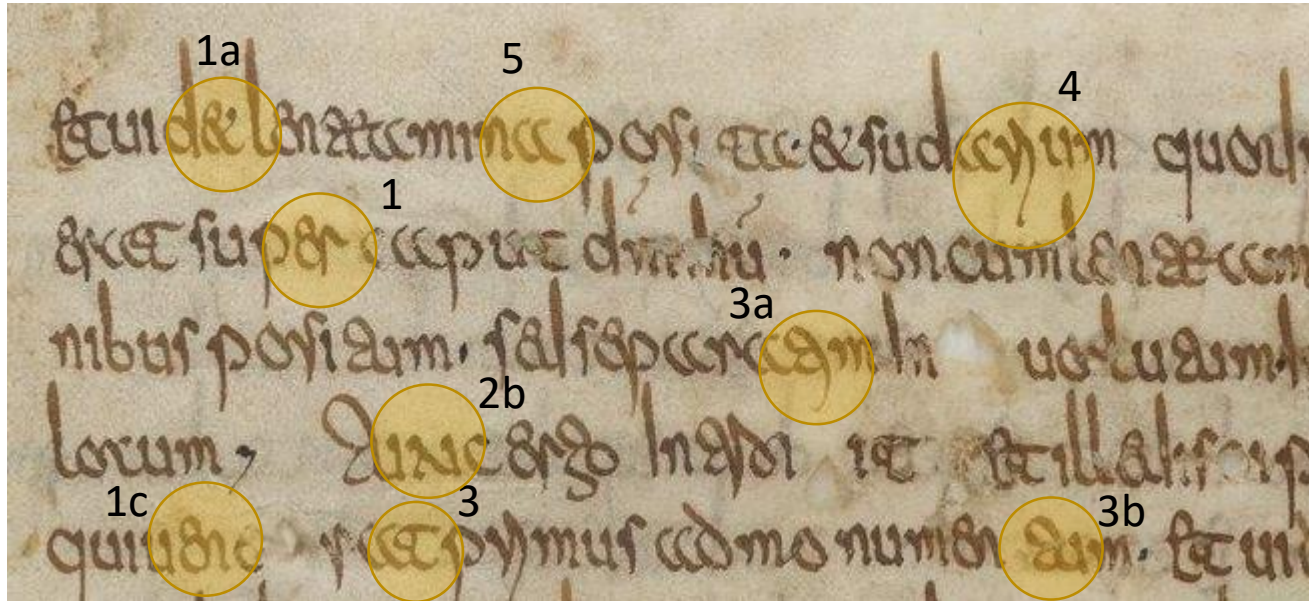 1a 5 4
Et uidet lenteamina posita. & sudarium
1
erat super caput dni ihu. non cum lenteam
3a
nibus positum. sed separatim in uolutum.
2b
locum; Tunc ergo introi it et ille discip
1c 3 3b
qui uenit primus ad monumentum. Et uid